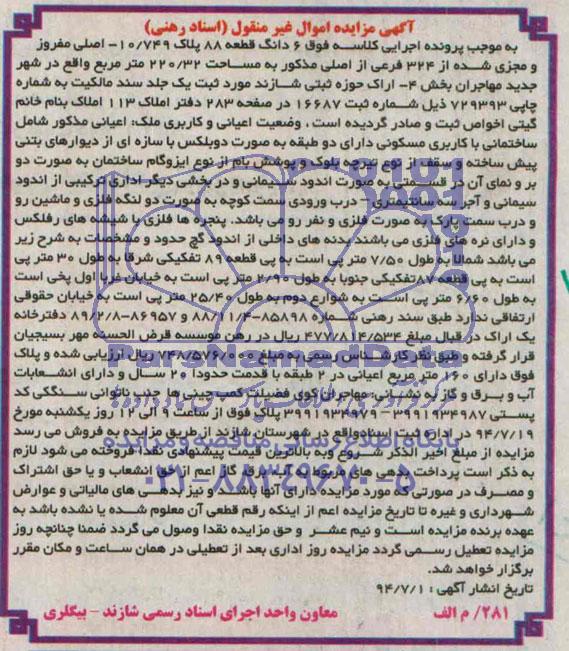 آگهی مزایده اموال غیر منقول (اسناد رهنی)
به موجب پرونده اجرایی کلاسه فوق ۶ دانگ قطعه ۸۸ پلاک ۱۰/۷۴۹- اصلی مفروز
و مجزی شده از ۳۲۴ فرعی از اصلی مذکور به مساحت ۲۲۰/۳۲ متر مربع واقع در شهر
جدید مهاجران بخش ۴- اراک حوزه ثبتی شازند مورد ثبت یک جلد سند مالکیت به شماره
چاپی ۷۲۹۳۹۳ ذیل شماره ثبت ۱۶۶۸۷ در صفحه ۲۸۳ دفتر املاک ۱۱۳ املاک بنام خانم
گیتی اخواص ثبت و صادر گردیده است ، وضعیت اعیانی و کاربری ملک: اعیانی مذکور شامل
ساختمانی با کاربری مسکونی دارای دو طبقه به صورت دوبلکس با سازه ای از دیوارهای بتنی
پیش ساخته و سقف از نوع تیرچه بلوک و پوشش بام از نوع ایزوگام ساختمان به صورت دو
بر و نمای آن در قسمتی به صورت اندود سیمانی و در بخشی دیگر اداری ترکیبی از اندود
سیمانی و آجر سه سانتیمتری - درب ورودی سمت کوچه به صورت دو لنگه فلزی و ماشین رو
و درب سمت پارک به صورت فلزی و نفر رو می باشد. پنجره ها فلزی با شیشه های رفلکس
و دارای نره های فلزی می باشند بدنه های داخلی از اندود گچ حدود و مشخصات به شرح زیر
می باشد شمالا به طول ۷/۵۰ متر پی است به پی قطعه ۸۹ تفکیکی شرقا به طول ۳۰ متر پی
است به پی قطعه ۸۷ تفکیکی جنوبا به طول ۲/۹۰ متر پی است به خیابان غربا اول پخی است
به طول ۶/۶۰ متر پی است به شوارع دوم به طول ۲۵/۴۰ متر پی است به خیابان حقوقی
ارتفاقی ندارد طبق سند رهنی شماره ۸۵۸۹۸-۸۸/۱۱/۴ و ۸۶۹۵۷-۸۹/۲/۸ دفترخانه
یک اراک در قبال مبلغ ۴۷۷/۸۱۴/۵۳۴ ریال در رهن موسسه قرض الحسنه مهر بسیجیان
قرار گرفته و طبق نظر کارشناس رسمی به مبلغ ۷۴۸/۵۷۶/۰۰۰ ریال ارزیابی شده و پلاک
فوق دارای ۱۶۰ متر مربع اعیانی در ۲ طبقه با قدمت حدودا ۲۰ سال و دارای انشعابات
آب و برق و گاز به نشانی: مهاجران کوی فضیلت کمپ چینی ها جنب نانوایی سنگکی کد
پستی ۳۹۹۱۹۳۴۹۸۷ - ۳۹۹۱۹۳۴۹۷۹ پلاک فوق از ساعت ۹ الی ۱۲ روز یکشنبه مورخ
۹۴/۷/۱۹ در اداره ثبت اسنادواقع در شهرستان شازند ازطریق مزایده به فروش می رسد
مزایده از مبلغ اخیر الذکر شروع وبه بالاترین قیمت پیشنهادی نقدا فروخته می شود لازم
به ذکر است پرداخت بدهی های مربوط به آب، برق، گاز اعم از حق انشعاب و یا حق اشتراک
و مصرف در صورتی که مورد مزایده دارای آنها باشد و نیز بدهی های مالیاتی و عوارض
شهرداری و غیره تا تاریخ مزایده اعم از اینکه رقم قطعی آن معلوم شده یا نشده باشد به
عهده برنده مزایده است و نیم عشر و حق مزایده نقدا وصول می گردد ضمنا چنانچه روز
مزایده تعطیل رسمی گردد مزایده روز اداری بعد از تعطیلی در همان ساعت و مکان مقرر
برگزار خواهد شد.
تاریخ انشار آگهی : ۹۴/۷/۱
۲۸۱/ م الف
معاون واحد اجرای اسناد رسمی شازند - بیگلری
ParsNamadData
پایگاه اطلاع رسانی مناقصه و مزایده
۰۲۱-۸۸۳۴۹۶۷۰-۵